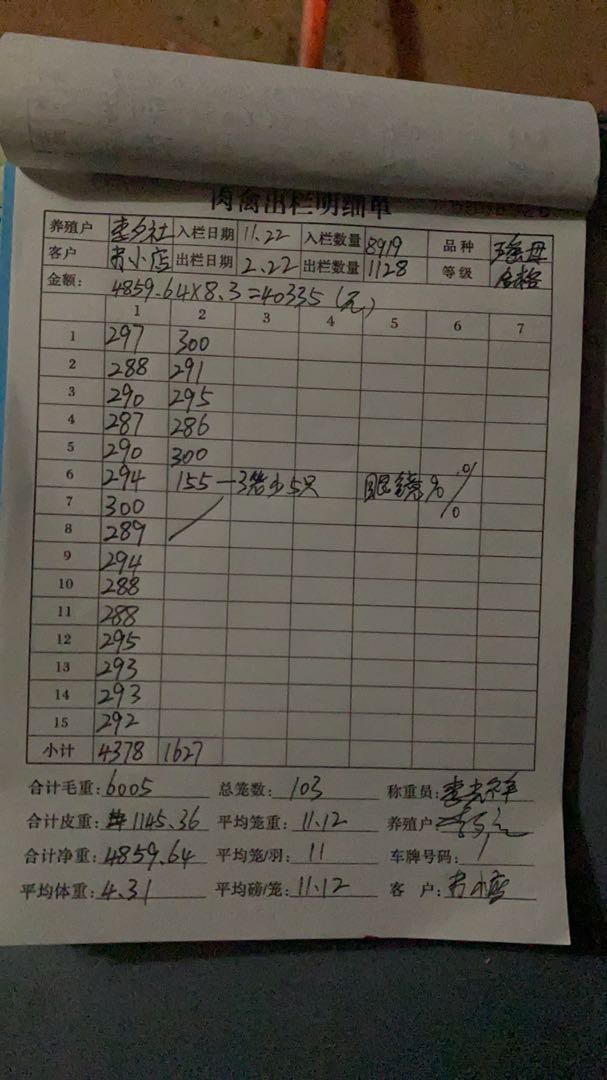 肉禽出栏明细单
养殖户 李夕社 入栏日期 11.22 入栏数量 8919 品种
客户 肖小店 出栏日期 2.22 出栏数量 1128 等级 合格
金额: 4859.64×8.3=40335(元)
1 2 3 4 5 6 7
1 297 300
2 288 291
3 290 295
4 287 286
5 290 300
6 294 155—3笼少5只 眼镜% %
7 300
8 289
9 294
10 288
11 288
12 295
13 293
14 293
15 292
小计 4378 1627
合计毛重: 6005 总笼数: 103 称重员:
合计皮重: 1145.36 平均笼重: 11.12 养殖户
合计净重: 4859.64 平均笼/羽: 11 车牌号码:
平均体重: 4.31 平均磅/笼: 11.12 客 户: 肖小店